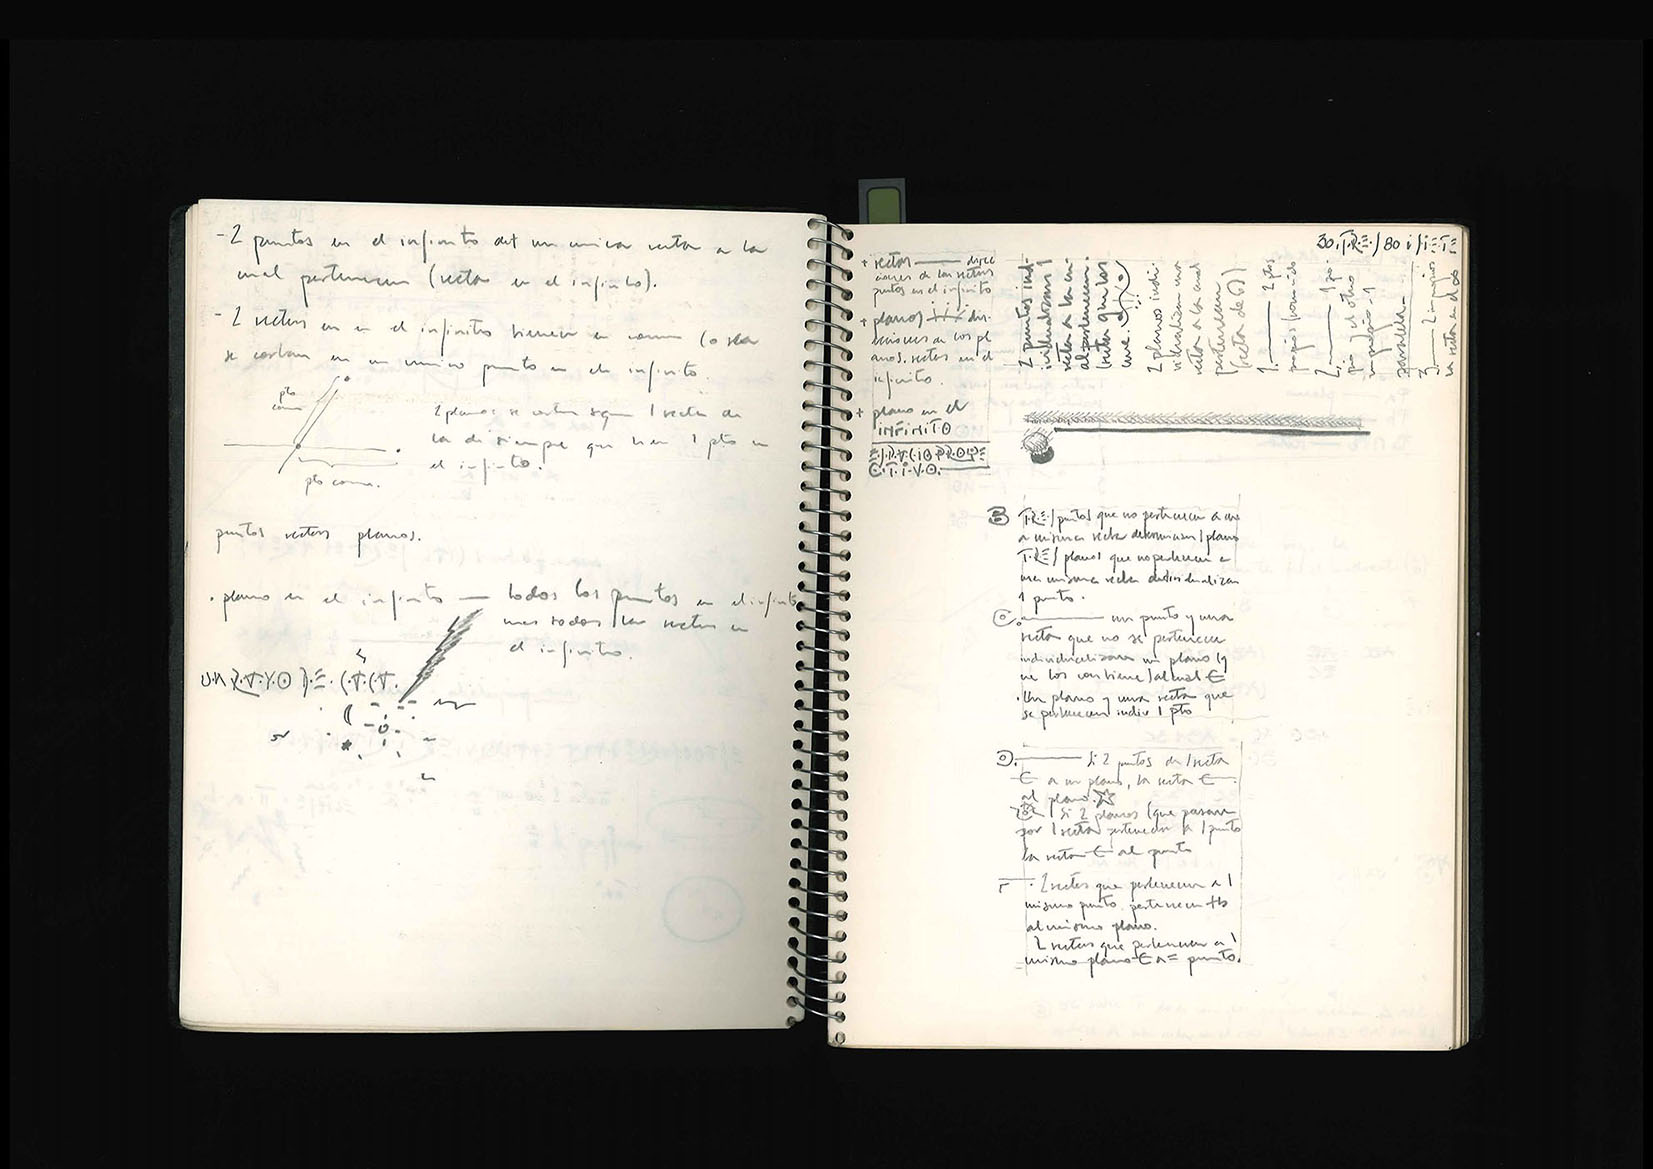 - 2 puntos en el infinito det un unica recta a la
cual pertenecen (recta en el infinito).
- 2 rectas en en el infinito tienen en comun (o sea
se cortan en un unico punto en el infinito.
pto
comun
2 planos se cortan segun 1 recta
siempre que tienen 1 pto en
el infinito.
pto comun.
puntos rectas planos.
. plano en el infinito — todos los puntos en el infinito
mas todas las rectas en
el infinito.
+ rectas — direc
ciones de las rectas
puntos en el infinito
+ planos) direcciones de los pl
anos. rectas en el
infinito.
+ plano en el
INFINITO
2 puntos ind-
ividualizan 1
recta a la cu-
al pertenecen.
(recta que los
une.
2 planos indi-
vidualizan una
recta a la cual
pertenecen
1. — 2 ptos
propios
2. — 1 pro-
pio y el otro
impropio 1
paralela
3 — 2 impropios
la recta en el ∞
B TRES puntos que no pertenecen a un
a misma recta determinan 1 plano
TRES planos que no pertenecen a
una misma recta individualizan
1 punto.
C. — un punto y una
recta que no se pertenecen
individualizan un plano (q
ue los contiene) al cual ∈
. Un plano y una recta que
se pertenecen indiv 1 pto
D. — Si 2 puntos de 1 recta
∈ a un plano, la recta ∈
al plano.
Si 2 planos (que pasan
por 1 recta pertenecen a 1 punto
la recta ∈ al punto
. 2 rectas que pertenecen a 1
mismo punto pertenecen tb
al mismo plano.
2 rectas que pertenecen a 1
mismo plano ∈ a = punto.